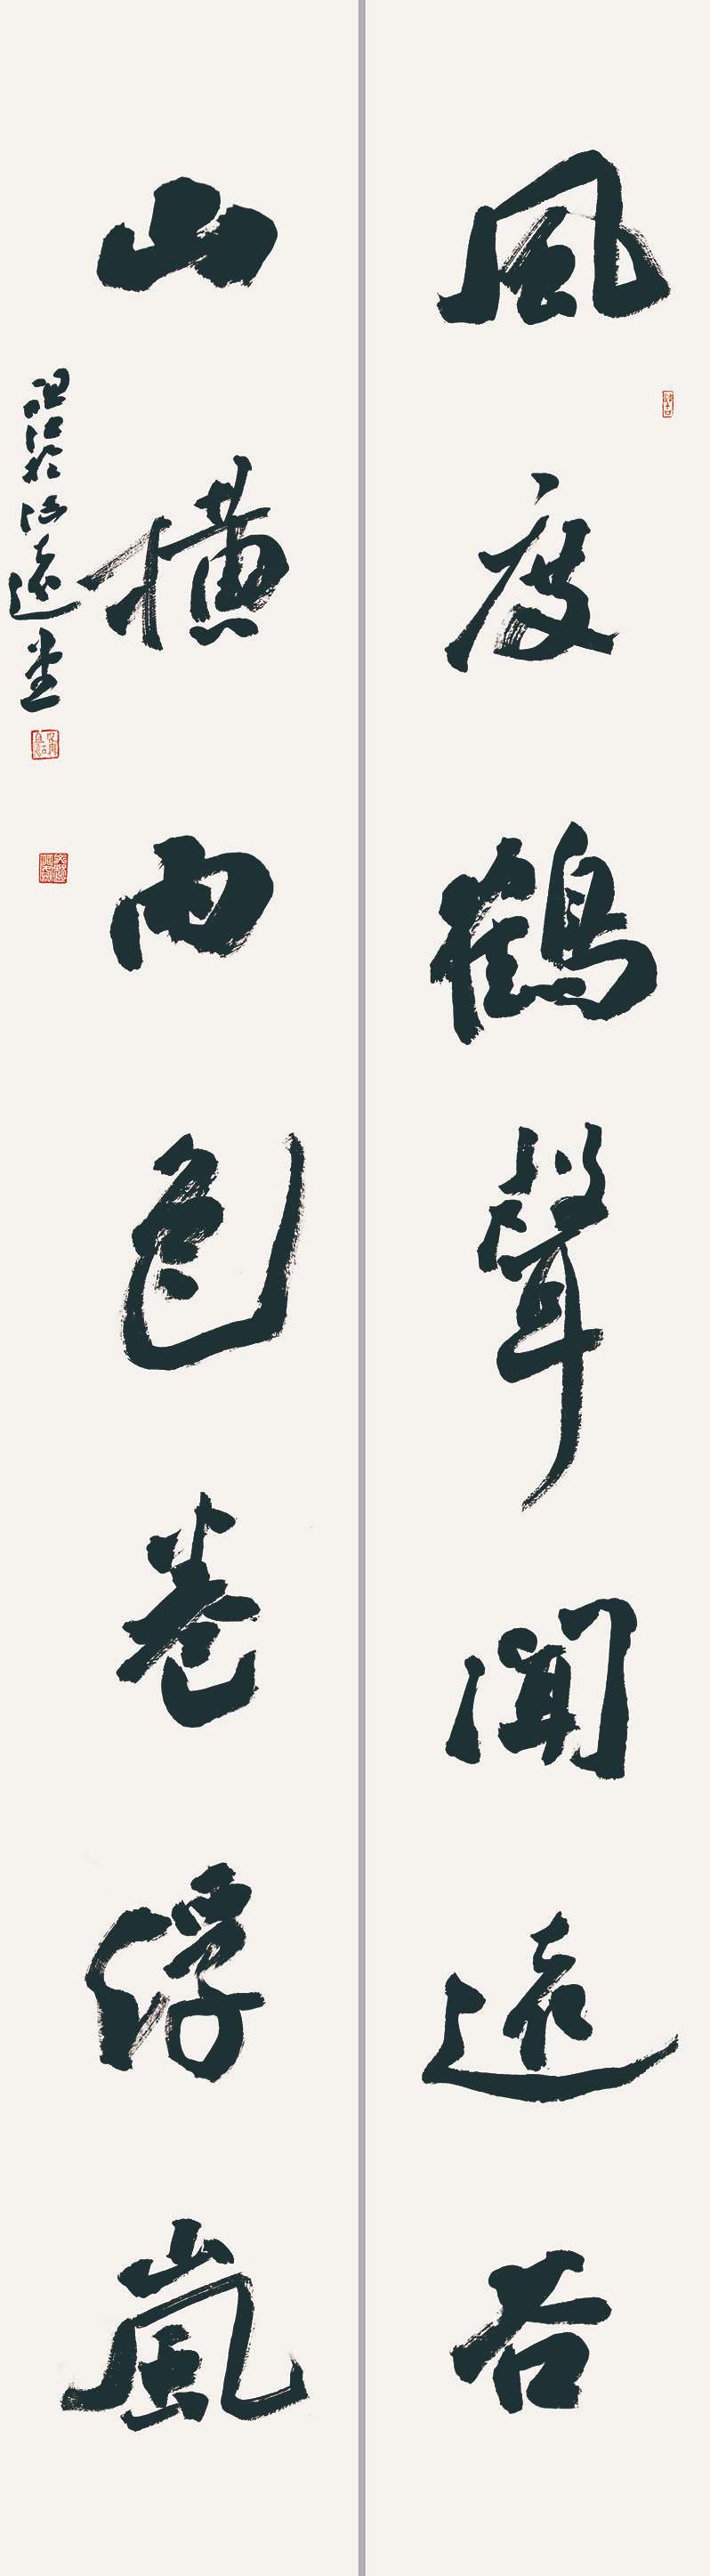 風度鶴聲聞遠谷
山橫雨色卷浮嵐